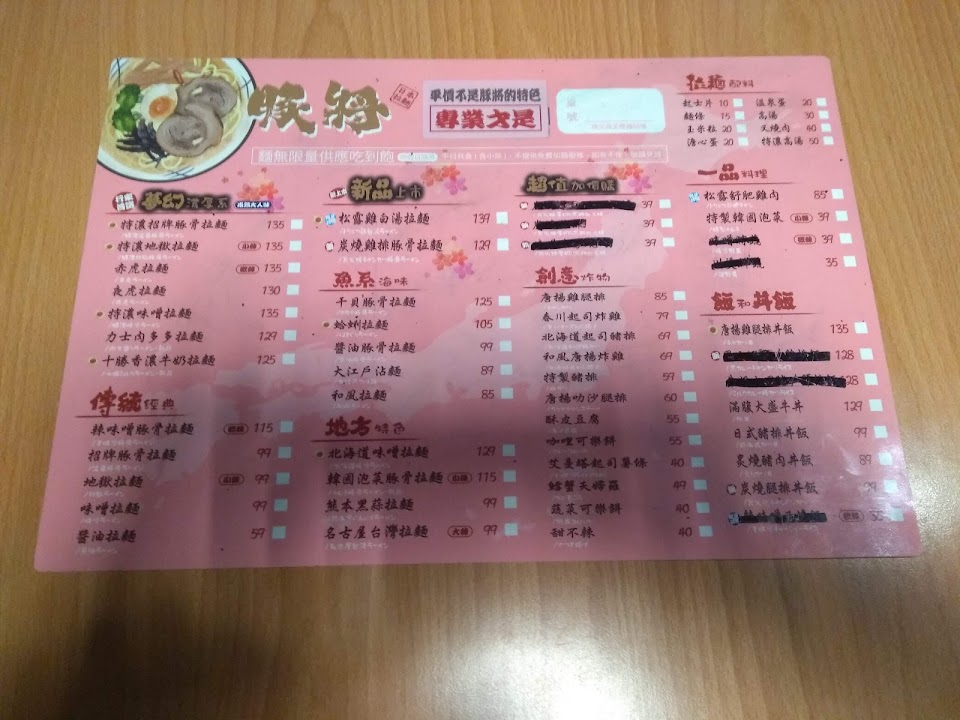 豚將
日本拉麵
平價不是豚將的特色
專業才是
桌號
麵無限量供應吃到飽
拉麵 配料
起士片 10
溫泉蛋 20
麵條 15
高湯 30
玉米粒 20
叉燒肉 40
溏心蛋 20
特濃高湯 50
夢幻 濃厚系
特濃招牌豚骨拉麵 135
特濃地獄拉麵 135
赤虎拉麵 135
夜虎拉麵 130
特濃味噌拉麵 135
力士肉多多拉麵 129
十勝香濃牛奶拉麵 125
傳統 經典
辣味噌豚骨拉麵 115
招牌豚骨拉麵 99
地獄拉麵 99
味噌拉麵 99
醬油拉麵 59
新品 上市
松露雞白湯拉麵 139
炭燒雞排豚骨拉麵 129
魚系 海味
干貝豚骨拉麵 125
蛤蜊拉麵 105
醬油豚骨拉麵 99
大江戶沾麵 89
和風拉麵 85
地方 特色
北海道味噌拉麵 129
韓國泡菜豚骨拉麵 小辣 115
熊本黑蒜拉麵 99
名古屋台灣拉麵 大辣 99
超值 加價購
39
39
39
創意 炸物
唐揚雞腿排 85
春川起司炸雞 79
北海道起司豬排 69
和風唐揚炸雞 69
特製豬排 59
唐揚叻沙腿排 60
酥皮豆腐 55
咖哩可樂餅 55
艾曼塔起司薯條 40
鱈蟹天婦羅 49
蔬菜可樂餅 40
甜不辣 40
一品 料理
松露舒肥雞肉 85
特製韓國泡菜 小辣 39
39
35
飯和丼飯
唐揚雞腿排丼飯 135
128
128
滿腹大盛牛丼 129
日式豬排丼飯 99
炭燒豬肉丼飯 89
炭燒腿排丼飯 99
35